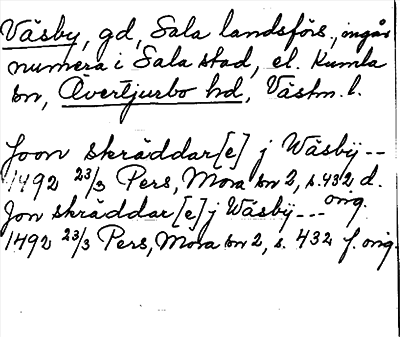 Väsby, gd, Sala landsförs., ingår
numera i Sala stad, el. Kumla
sn, Övertjurbo hd, Västm. l.
Joon skräddar[e] j Wäsbÿ--
1492 23/3 Pers, Mora sn 2, s. 432 d.
orig.
Jon skräddar[e] j Wäsbÿ---
1492 23/3 Pers, Mora sn 2, s. 432 f. orig.